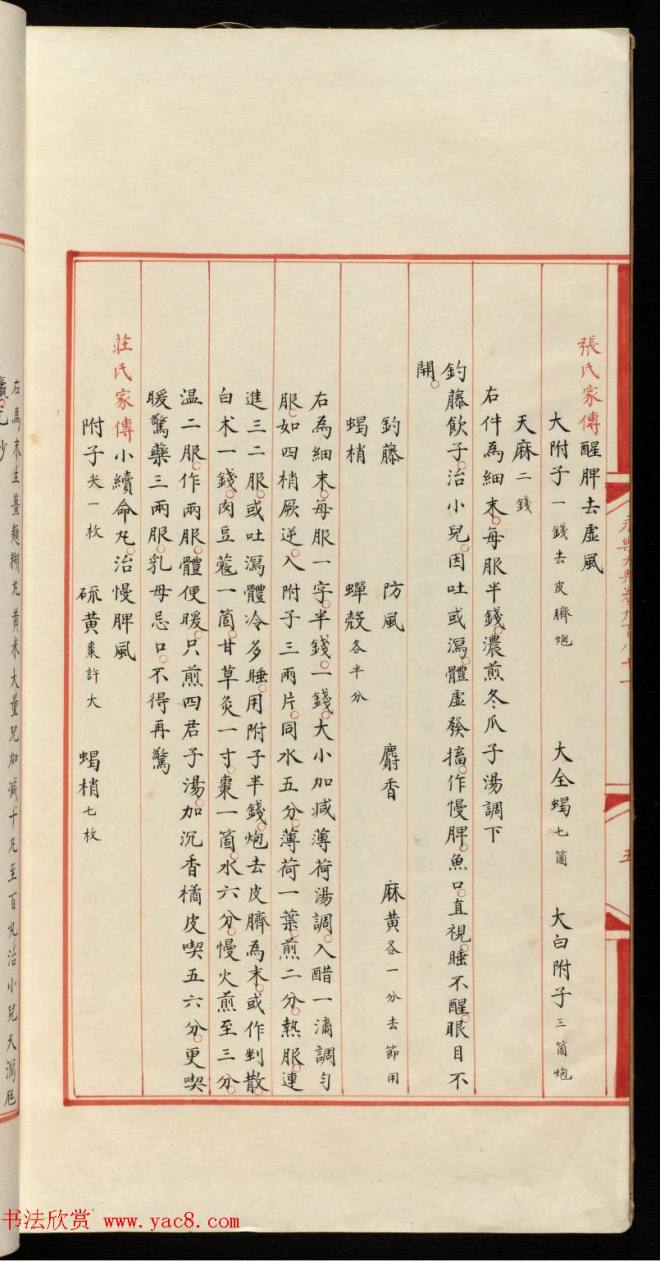 張氏家傳醒脾去虛風
大附子一錢去皮臍炮 大全蝎七箇 大白附子三箇炮
天麻二錢
右件為細末。每服半錢。濃煎冬瓜子湯調下
釣藤飲子。治小兒。因吐或瀉。體虛發搐。作慢脾。魚口。直視。睡不醒。眼目不
開。
釣藤 防風 麝香 麻黃各一分去節用
蝎梢 蟬殼各半分
右為細末。每服一字。半錢。一錢。大小加減薄荷湯調。入醋一滴調勻
服。如四梢厥逆。入附子三兩片。同水五分。薄荷一葉。煎二分。熱服。連
進三二服。或吐瀉體冷多睡。用附子半錢。炮去皮臍為末。或作剉散。
白朮一錢。肉豆蔻一箇。甘草炙一寸。棗一箇。水六分。慢火煎至三分。
温二服。作兩服。體便暖。只煎四君子湯。加沉香橘皮喫五六分。更喫
暖驚藥三兩服。乳母忌口。不得再驚
莊氏家傳小續命丸。治慢脾風
附子尖一枚 硫黃棗許大 蝎梢七枚
永樂大典卷九百八十一
五
右為末生薑麵糊丸黃米大量兒加減十丸至百丸治小兒大瀉
书法欣赏 www.yac8.com